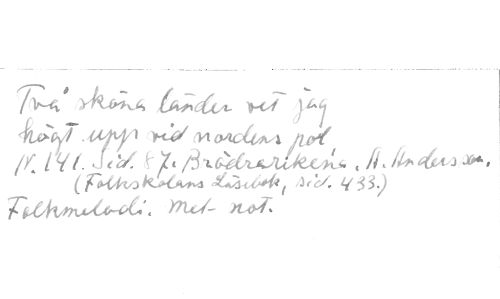 Två sköna länder vet jag
högt upp vid nordens pol,
N. 141. Sid. 87. Brödrarikena. A. Andersson.
(Folkskolans Läsebok, sid. 433.)
Folkmelodi. Met- not.